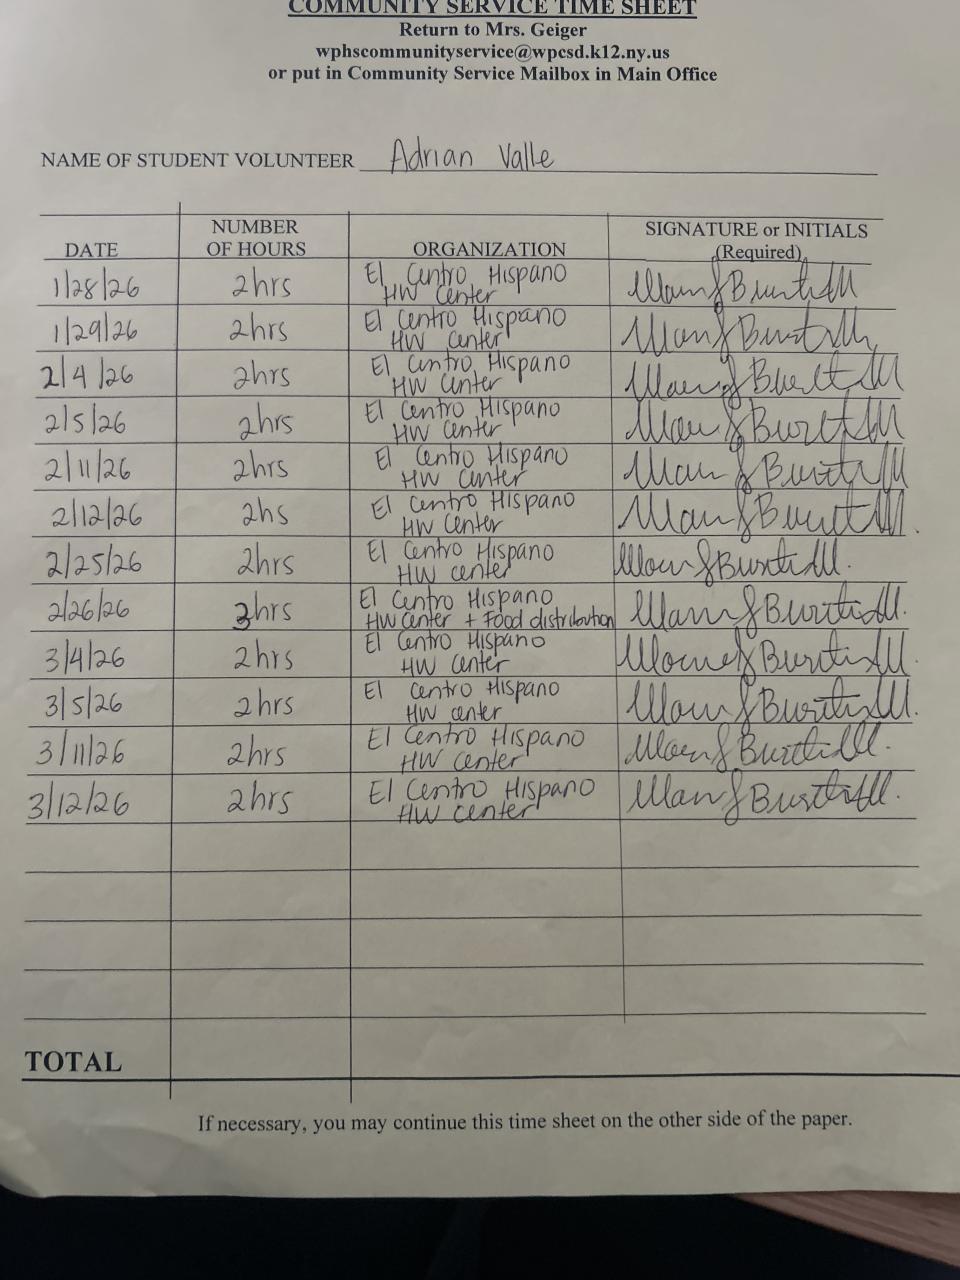 COMMUNITY SERVICE TIME SHEET
Return to Mrs. Geiger
wphscommunityservice@wpcsd.k12.ny.us
or put in Community Service Mailbox in Main Office
NAME OF STUDENT VOLUNTEER Adrian Valle
DATE NUMBER OF HOURS ORGANIZATION SIGNATURE or INITIALS (Required)
1/28/26 2hrs El Centro Hispano
HW Center
1/29/26 2hrs El Centro Hispano
HW Center
2/4/26 2hrs El Centro Hispano
HW Center
2/5/26 2hrs El Centro Hispano
HW Center
2/11/26 2hrs El Centro Hispano
HW Center
2/12/26 2hs El Centro Hispano
HW Center
2/25/26 2hrs El Centro Hispano
HW center
2/26/26 3hrs El Centro Hispano
HW Center + Food distribution
3/4/26 2hrs El Centro Hispano
HW Center
3/5/26 2hrs El Centro Hispano
HW center
3/11/26 2hrs El Centro Hispano
HW center
3/12/26 2hrs El Centro Hispano
HW center
TOTAL
If necessary, you may continue this time sheet on the other side of the paper.